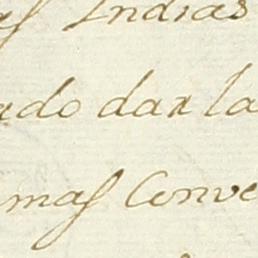 as Indias
ado dar la
mas Conve